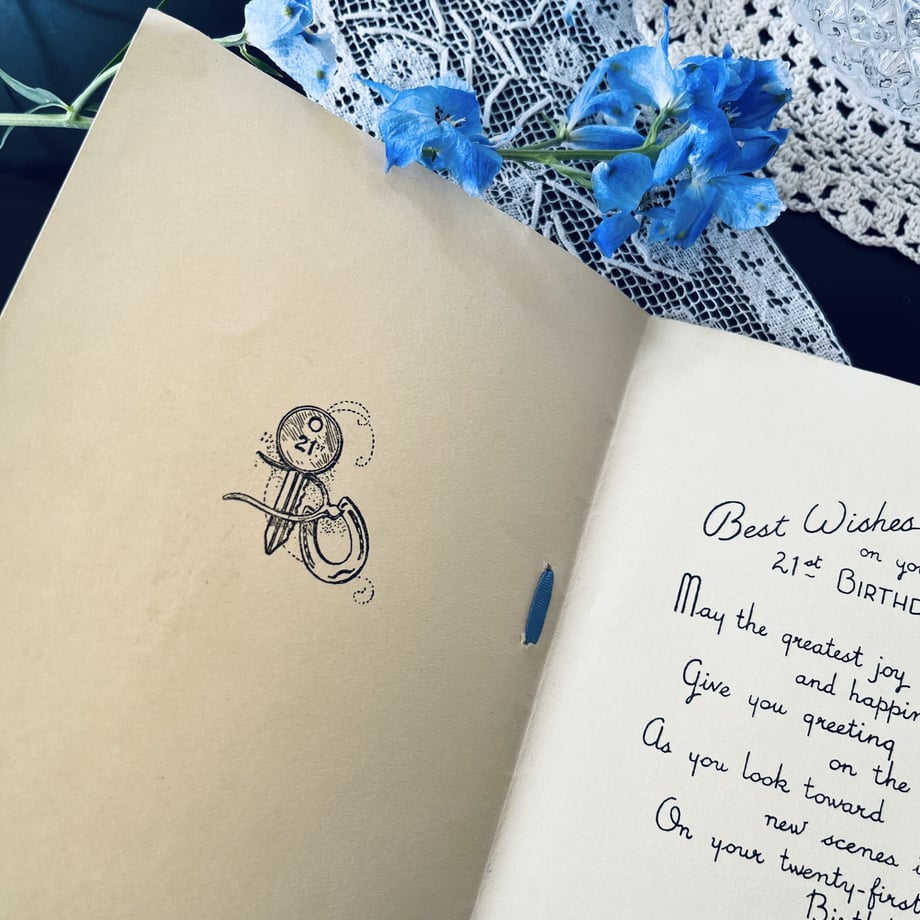 21st
Best Wishes
on yo
21st BIRTHD
May the greatest joy
and happin
Give you greeting
on the
As you look toward
new scenes
On your twenty-first
Birth